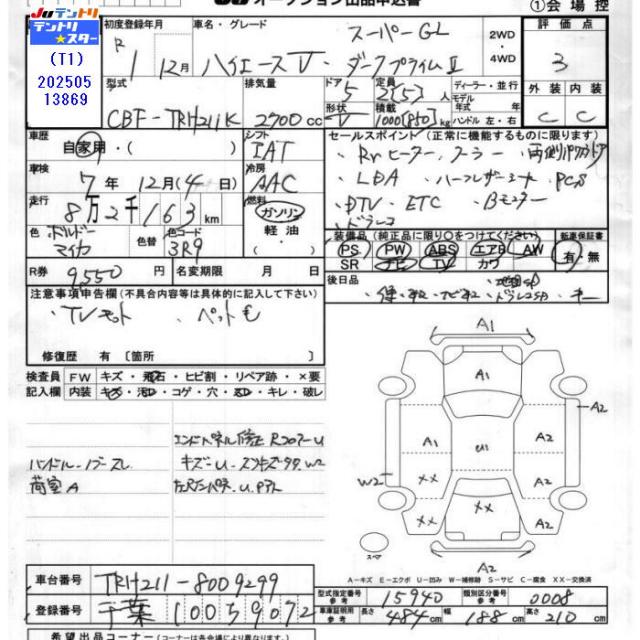 JUテントリ
テントリ
★スター
(T1)
202505
13869
オークション出品申込書
①会場控
初度登録年月
車名・グレード
スーパーGL
2WD
4WD
評価点
R1 12月
ハイエースV ダークプライムⅡ
3
型式
排気量
ドア 5
定員 2(5)人
ディーラー・並行
モデル年式 年
外装 内装
CBF-TRH211K
2700cc
形状 V
積載 1000[850]kg
ハンドル 左・右
C C
車歴
自家用・( )
シフト
IAT
セールスポイント(正常に機能するものに限ります)
・Rrヒーター、クーラー ・両側パワスラドア
車検
7年12月(4日)
冷房
AAC
・LDA ・ハーフレザーシート ・PCS
走行
8万2千163km
燃料
ガソリン
軽油
・DTV ・ETC ・Bモニター
・ドラレコ
色 ボルドーマイカ
色替
色コード
3R9
装備品(純正品に限り○をつけてください)
新車保証書
PS PW ABS エアB AW
有・無
SR ナビ TV カワ
R券
9,550円
名変期限 月 日
後日品
・保・取・ナビ取・ドラレコSD・キー
注意事項申告欄(不具合内容等は具体的に記入して下さい)
・TVキット ・ペット毛
修復歴 有〔箇所 〕
検査員
FW
キズ・飛石・ヒビ割・リペア跡・×要
記入欄
内装
キズ・汚レ・コゲ・穴・ヌレ・キレ・破レ
エンドパネル修正 RフロアーU
ハンドル・ノブスレ
荷室A
A1
A1
A2
A2
U1
A2
XX
A2
W2
XX
XX
A2
スペア
A2
A-キズ E-エクボ U-凹み W-補修跡 S-サビ C-腐食 XX-交換済
車台番号
TRH211-8009299
登録番号
千葉 100 5 9072
型式指定番号 参考
15940
類別区分番号 参考
0008
車庫証明用 参考
長さ 484cm
幅 188cm
高さ 210cm
希望出品コーナー(コーナーは各会場により異なります。)